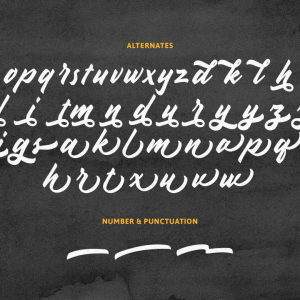 ALTERNATES
opqrstuvwxyzdklh
litmnduryyz
gsaklmnapq
hrtxuvw
NUMBER & PUNCTUATION